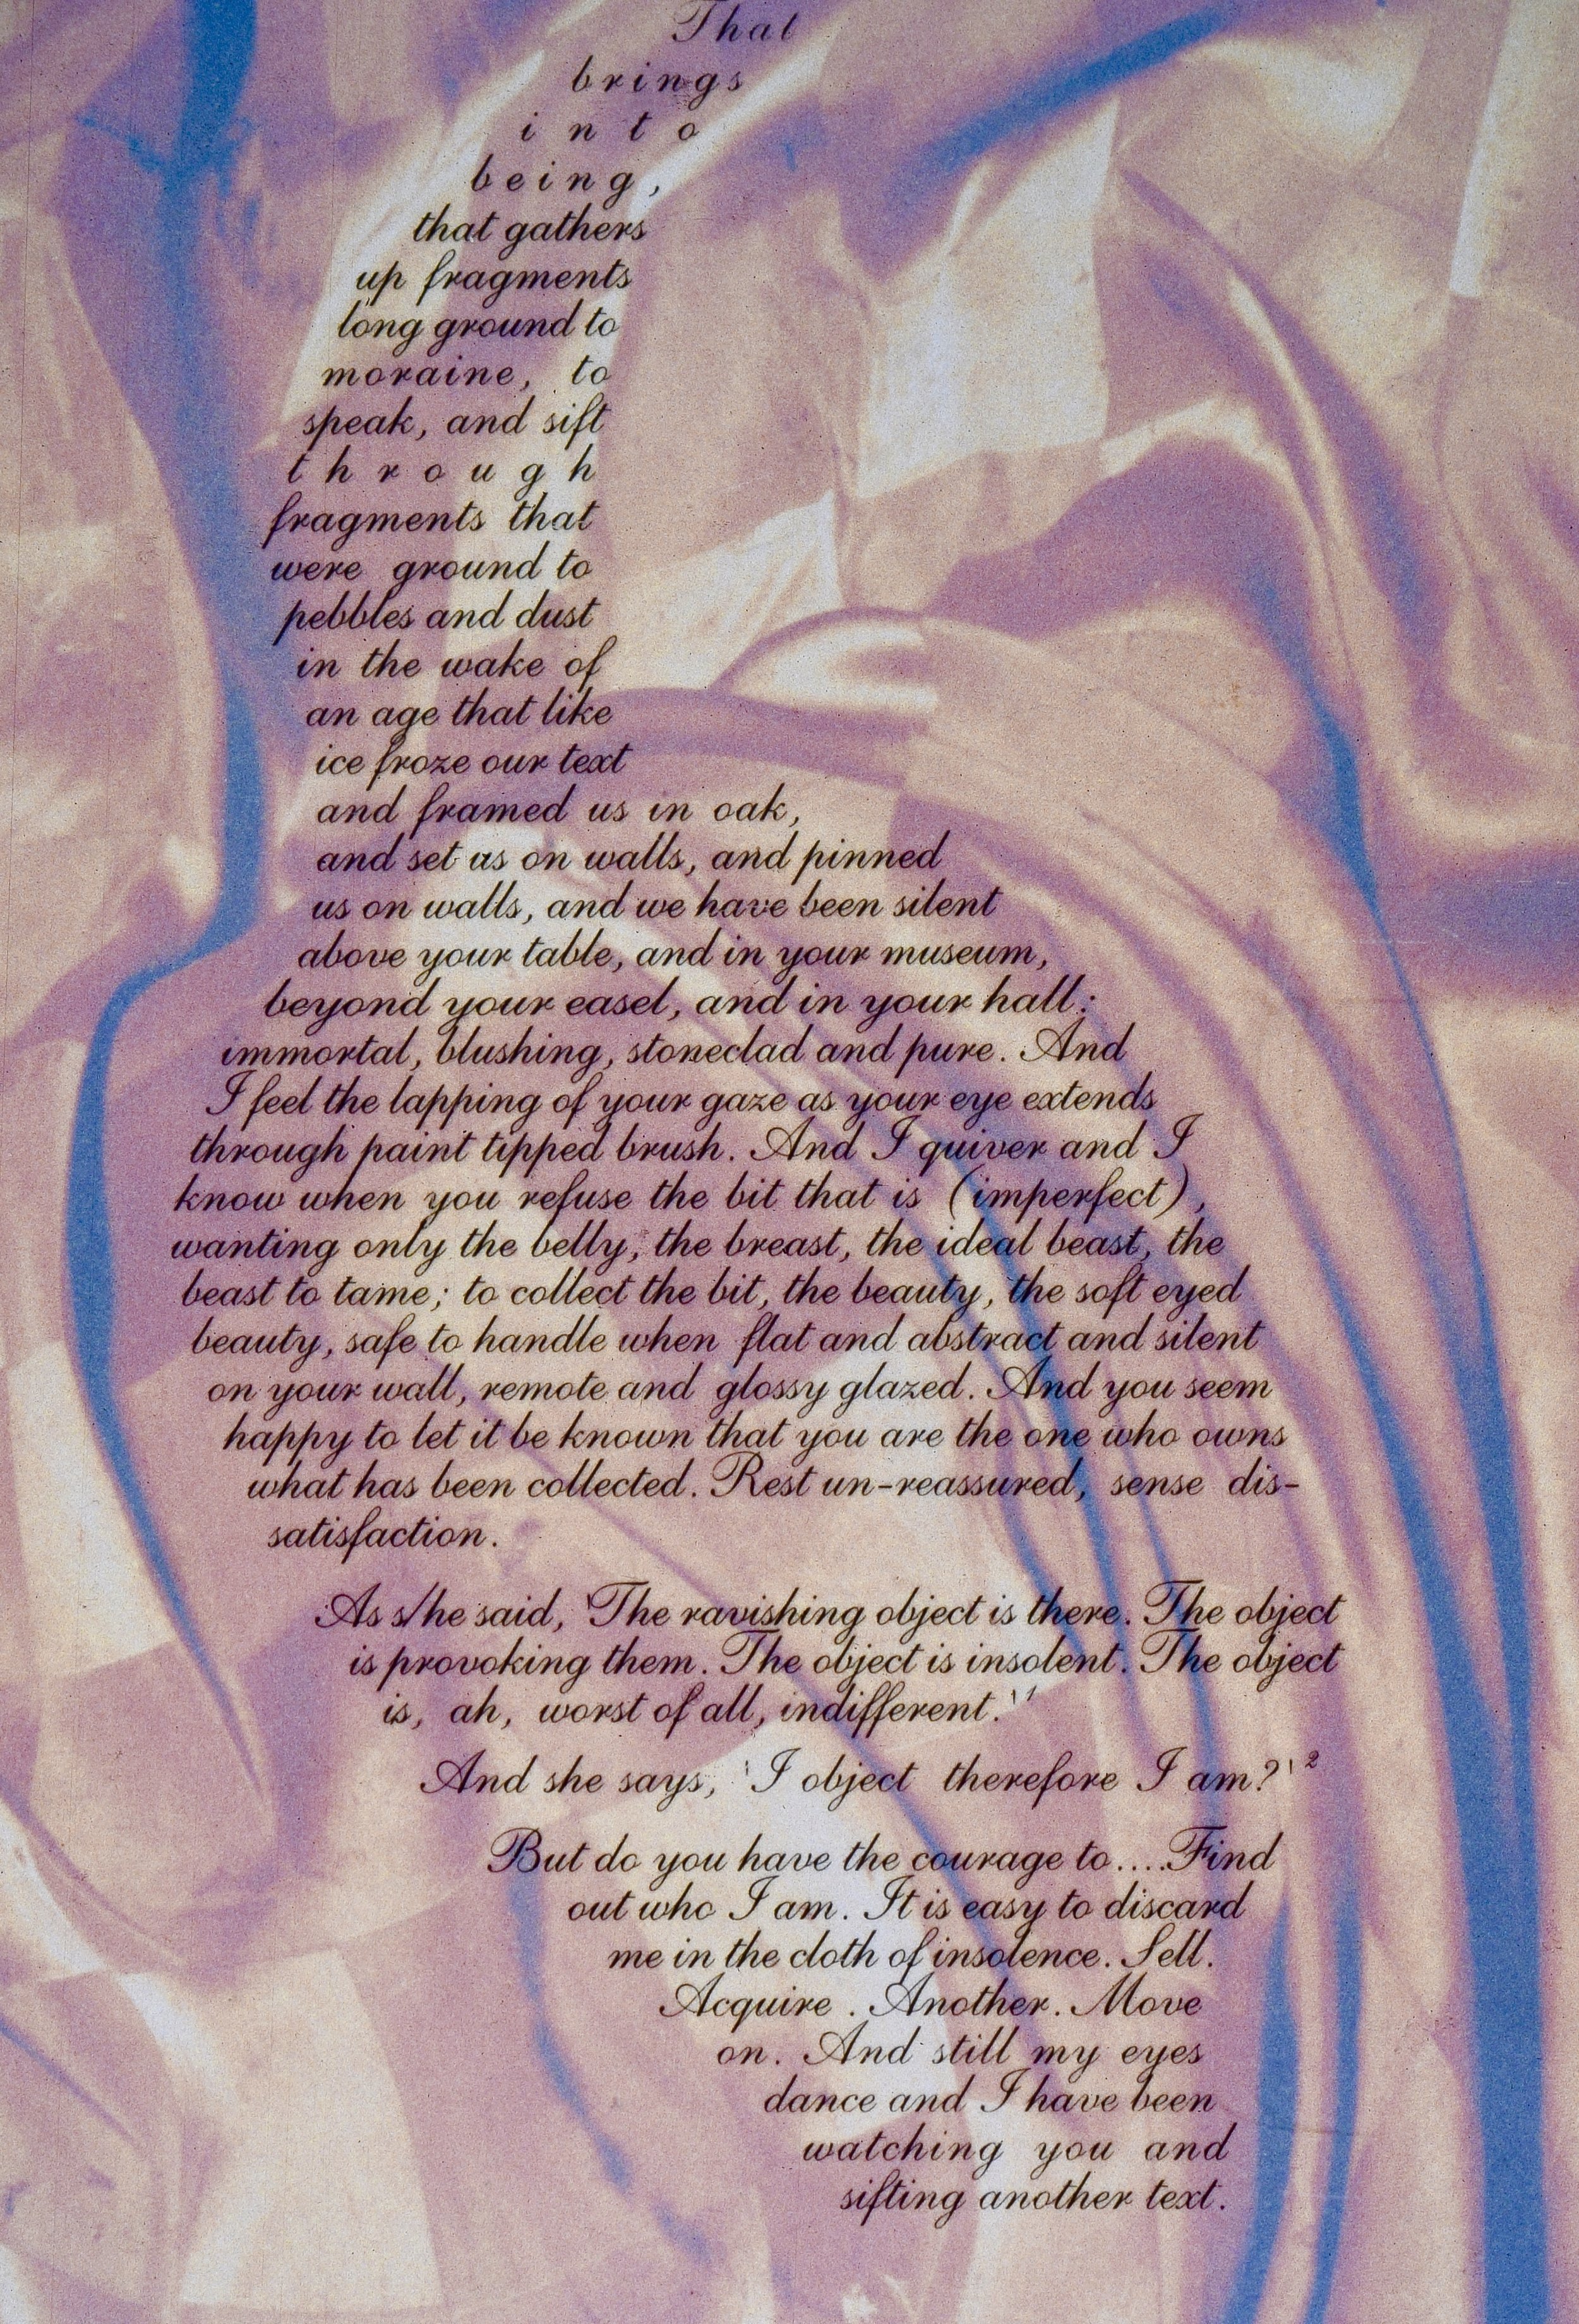 That
brings
into
being,
that gathers
up fragments
long ground to
moraine, to
speak, and sift
through
fragments that
were ground to
pebbles and dust
in the wake of
an age that like
ice froze our text
and framed us in oak,
and set us on walls, and pinned
us on walls, and we have been silent
above your table, and in your museum,
beyond your easel, and in your hall:
immortal, blushing, stoneclad and pure. And
I feel the lapping of your gaze as your eye extends
through paint tipped brush. And I quiver and I
know when you refuse the bit that is (imperfect),
wanting only the belly, the breast, the ideal beast, the
beast to tame; to collect the bit, the beauty, the soft eyed
beauty, safe to handle when flat and abstract and silent
on your wall, remote and glossy glazed. And you seem
happy to let it be known that you are the one who owns
what has been collected. Rest un-reassured, sense dis-
satisfaction.
As s/he said, 'The ravishing object is there. The object
is provoking them. The object is insolent. The object
is, ah, worst of all, indifferent.'¹
And she says, 'I object therefore I am?'²
But do you have the courage to....Find
out who I am. It is easy to discard
me in the cloth of insolence. Sell.
Acquire. Another. Move
on. And still my eyes
dance and I have been
watching you and
sifting another text.